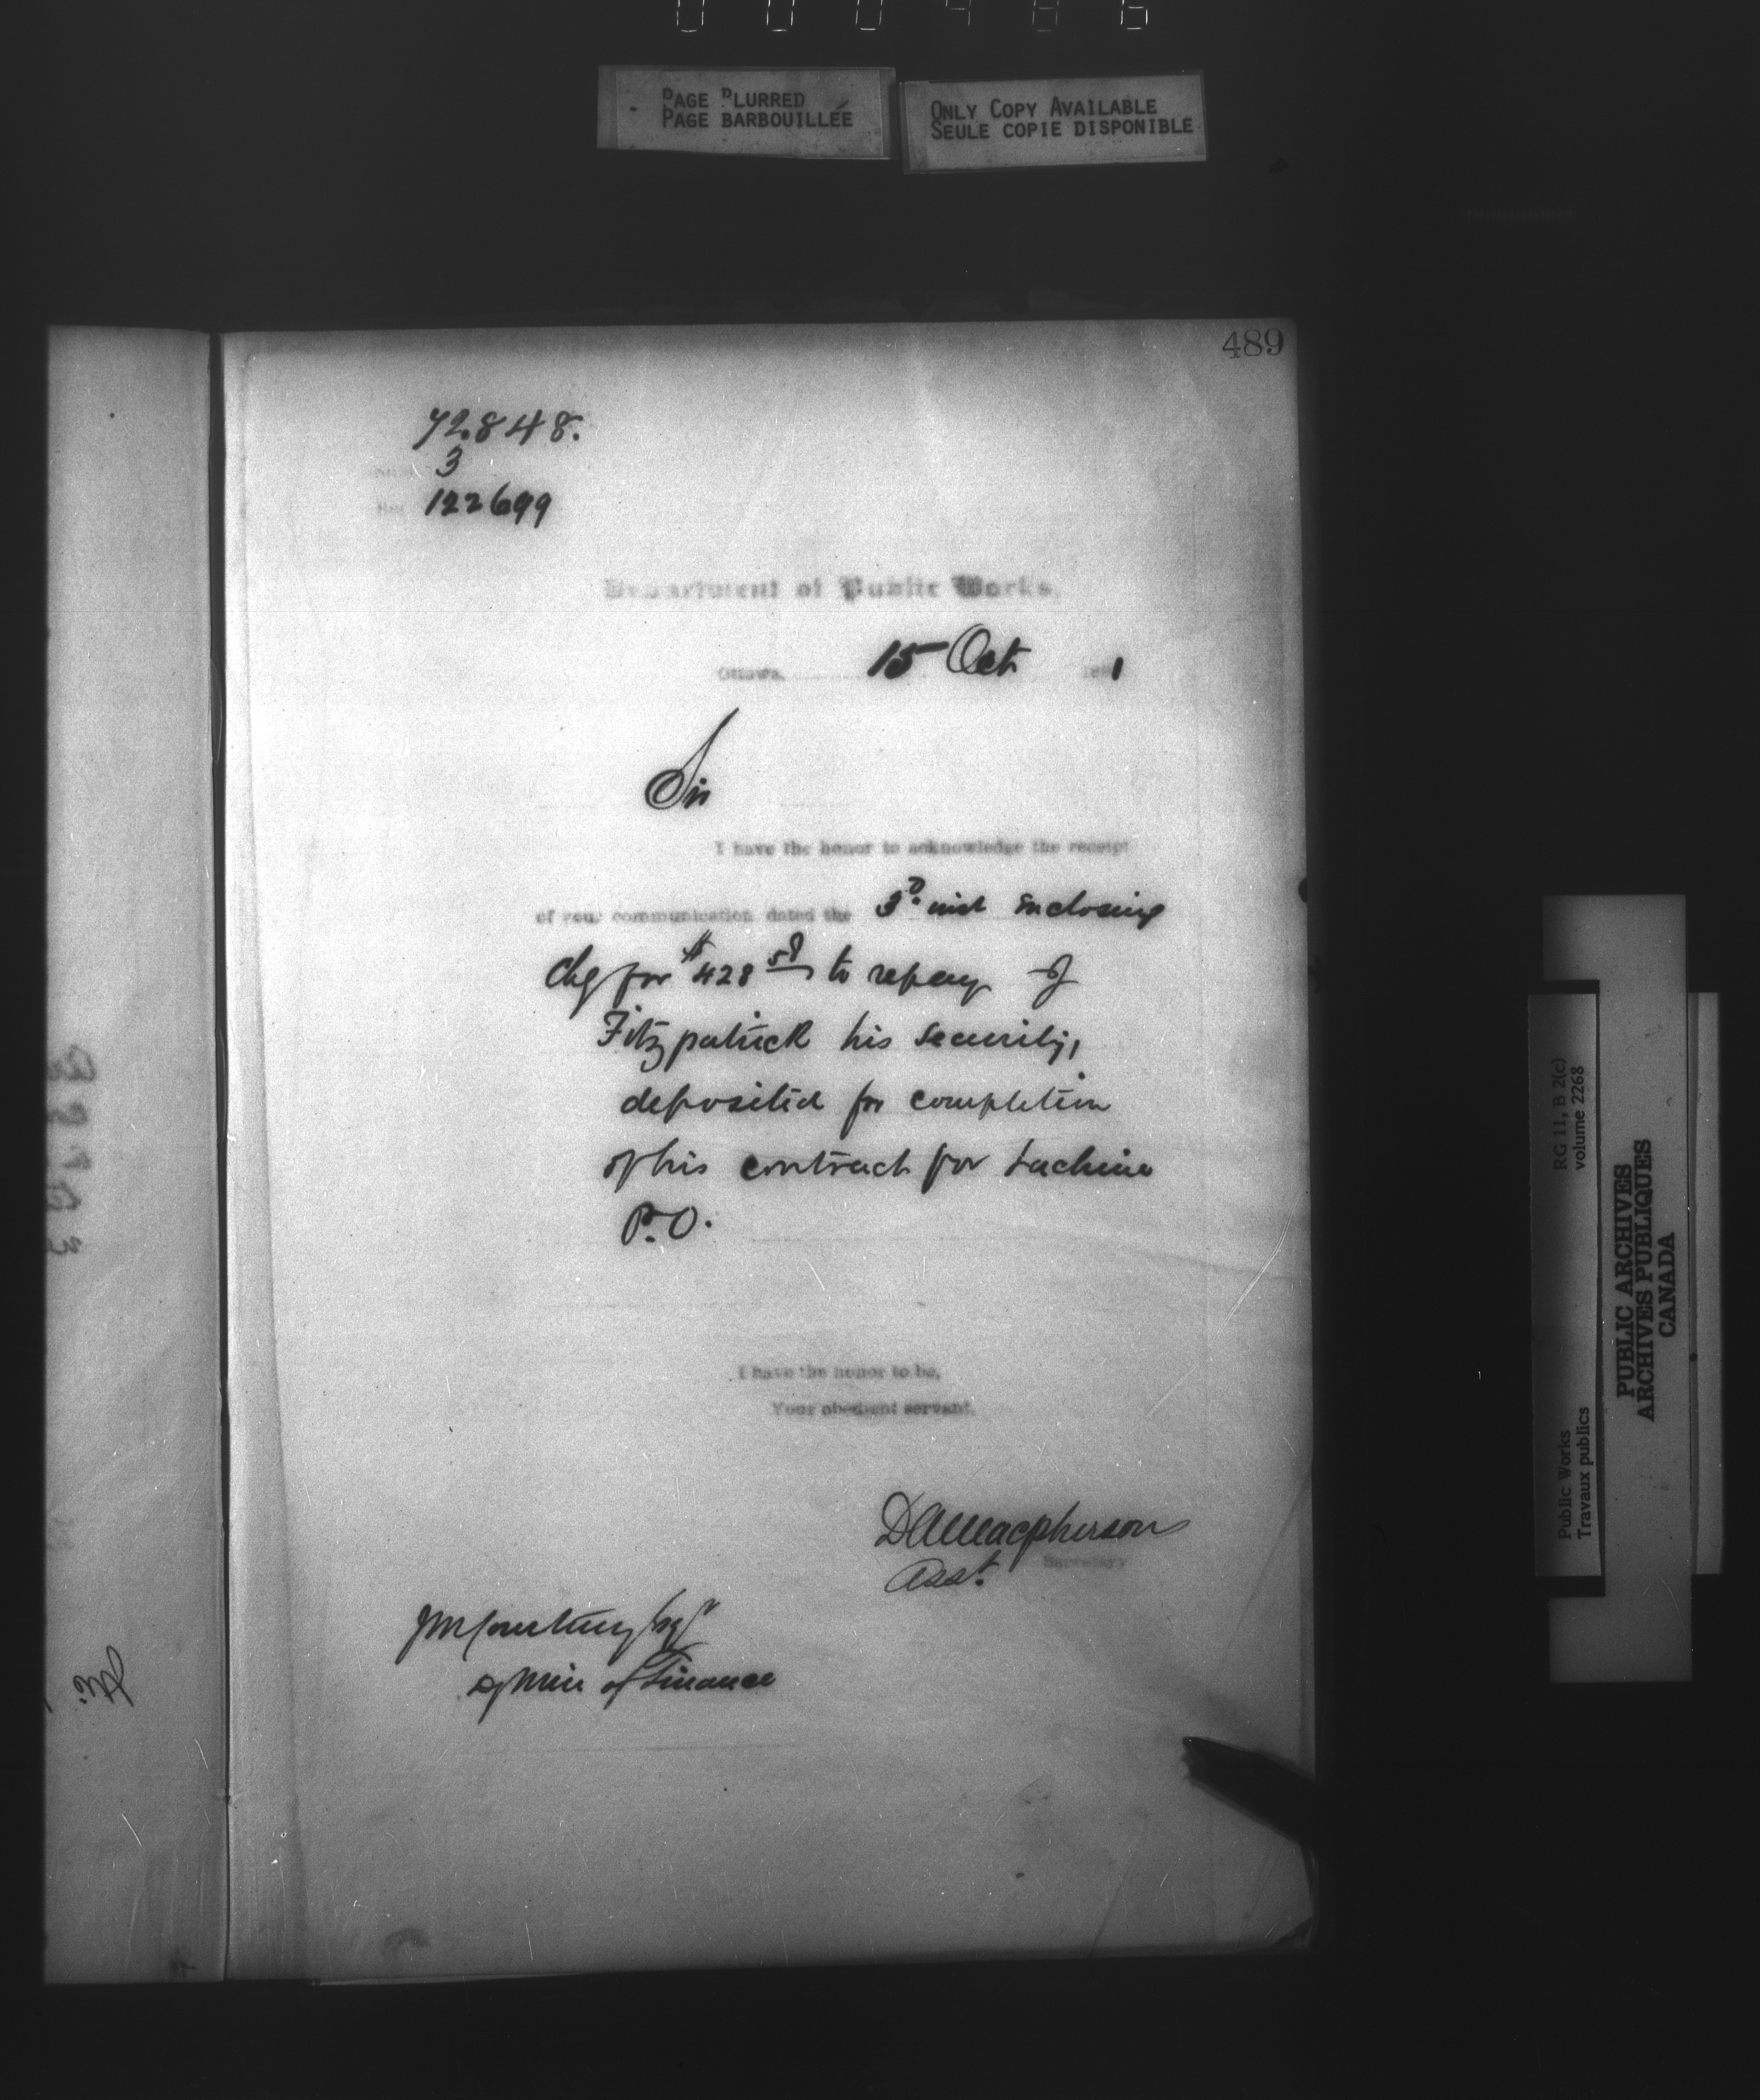 PAGE BLURRED
PAGE BARBOUILLÉE
ONLY COPY AVAILABLE
SEULE COPIE DISPONIBLE
489
72848.
3
122699
Department of Public Works,
Ottawa, 15 Oct 1
Sir
I have the honor to acknowledge the receipt
of your communication dated the 3d inst enclosing
chq for $428 58 to repay J
Fitzpatrick his security,
deposited for completion
of his contract for Lachine
P.O.
I have the honor to be,
Your obedient servant,
DAMacpherson
Asst. Secretary
JM Courtney Esqr
Dy Min of Finance
RG 11, B 2(c)
volume 2268
Public Works
Travaux publics
PUBLIC ARCHIVES
ARCHIVES PUBLIQUES
CANADA